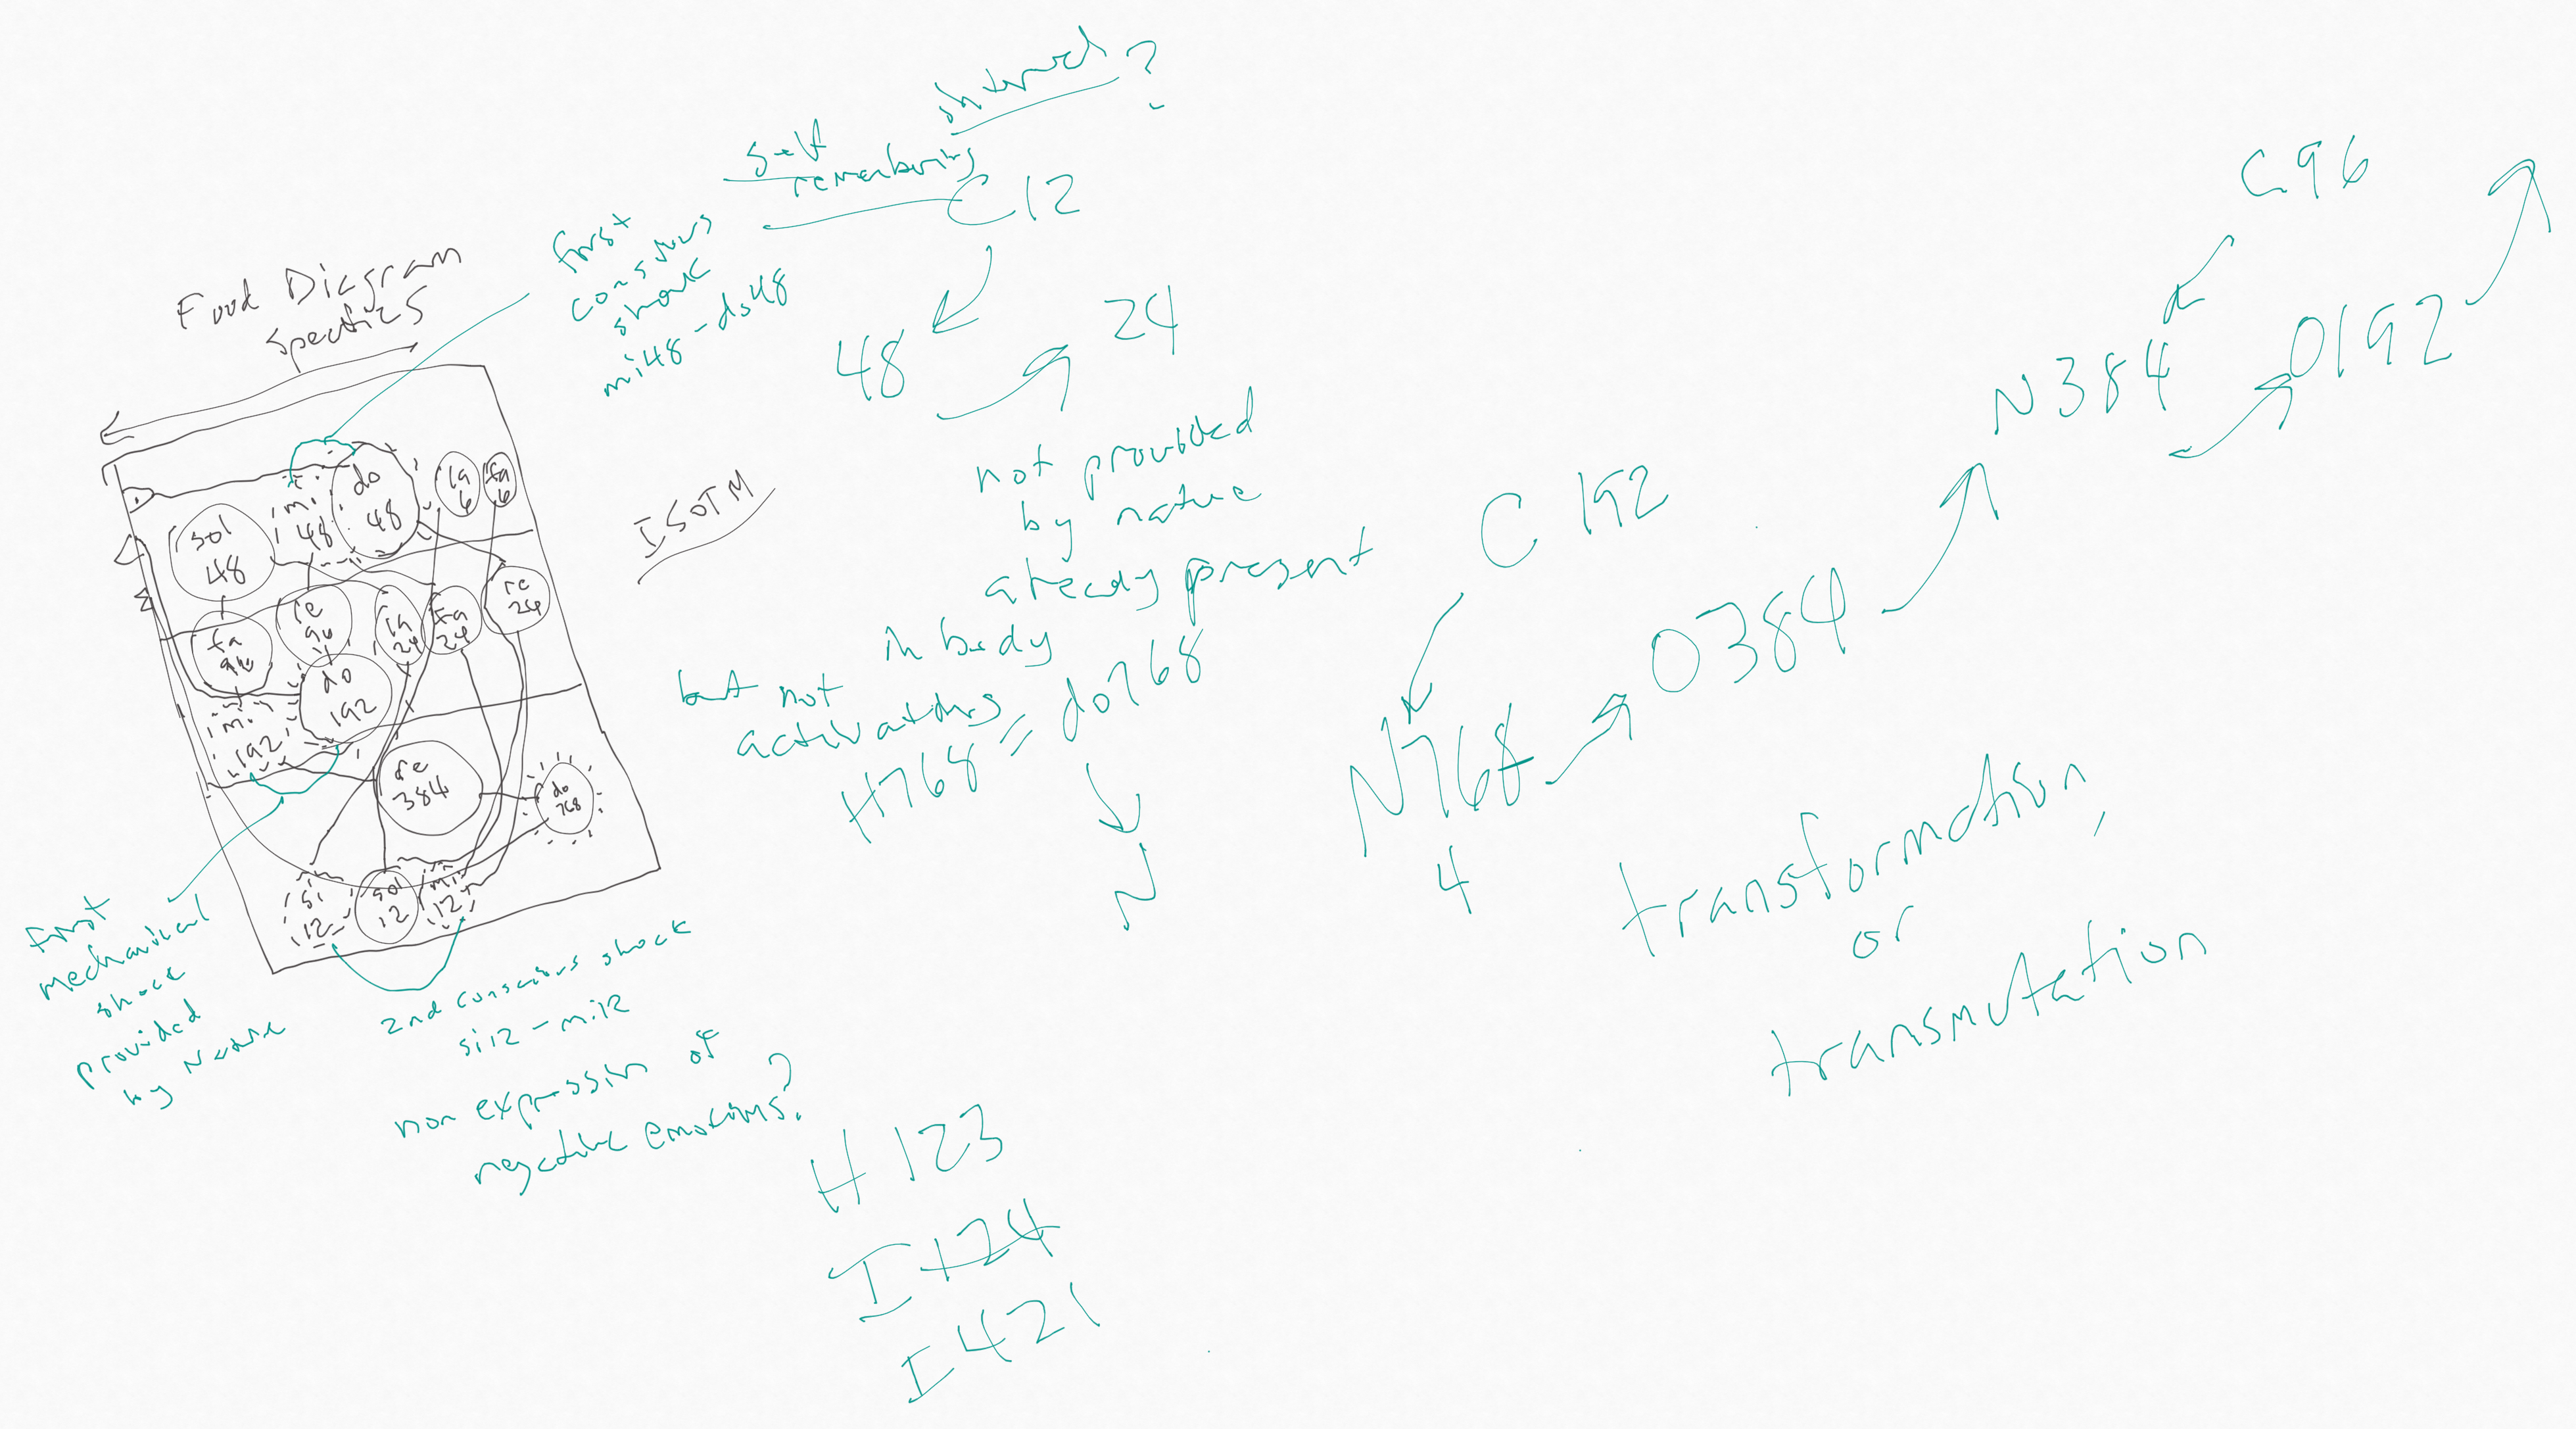 Food Diagram
Specifics
sol
48
mi
48
do
48
la
6
fa
6
fa
96
re
96
la
24
fa
24
re
24
mi
192
do
192
re
384
do
768
si
12
sol
12
mi
12
first
mechanical
shock
provided
by Nature
2nd conscious shock
si12 - mi12
non expression of
negative emotions?
first
conscious
shock
mi48 - do48
self
remembering
?
C12
48
24
ISOTM
not provided
by nature
already present
in body
but not
H768 = do768
N
C 192
N768
4
O384
N384
C96
O192
transformation,
or
transmutation
H 123
I 124
I 421